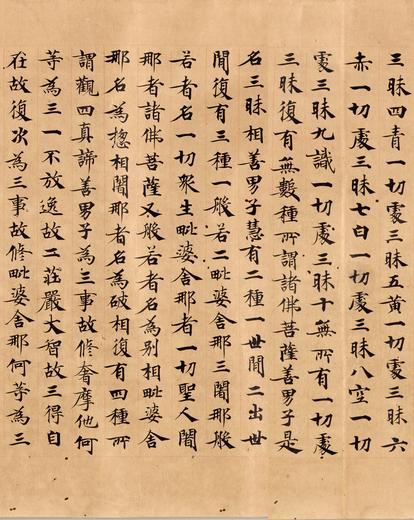 三昧四青一切處三昧五黃一切處三昧六
赤一切處三昧七白一切處三昧八空一切
處三昧九識一切處三昧十無所有一切處
三昧復有無數種所謂諸佛菩薩善男子是
名三昧相善男子慧有二種一世間二出世
間復有三種一般若二毗婆舍那三闍那般
若者名一切衆生毗婆舍那者一切聖人闍
那者諸佛菩薩又般若者名為別相毗婆舍
那名為揔相闍那者名為破相復有四種所
謂觀四真諦善男子為三事故修奢摩他何
等為三一不放逸故二莊嚴大智故三得自
在故復次為三事故修毗婆舍那何等為三